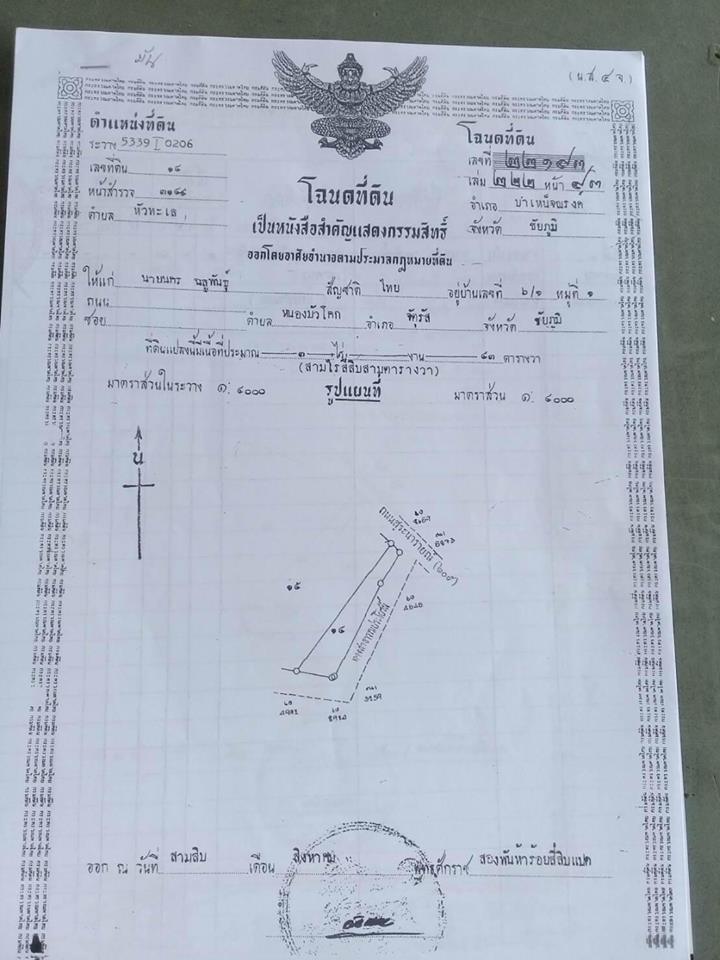 มัน
(น.ส. ๔ จ.)
ตำแหน่งที่ดิน
ระวาง 5339 I 0206
เลขที่ดิน ๑๔
หน้าสำรวจ
ตำบล หัวทะเล
โฉนดที่ดิน
เลขที่
เล่ม ๓๒๒ หน้า ๔๗
อำเภอ บำเหน็จณรงค์
จังหวัด ชัยภูมิ
โฉนดที่ดิน
เป็นหนังสือสำคัญแสดงกรรมสิทธิ์
ออกโดยอาศัยอำนาจตามประมวลกฎหมายที่ดิน
ให้แก่ นายนกร สัญชาติ ไทย อยู่บ้านเลขที่ ๖/๑ หมู่ที่ ๑
ถนน
ซอย ตำบล หนองบัวโคก อำเภอ จัตุรัส จังหวัด ชัยภูมิ
ที่ดินแปลงนี้มีเนื้อที่ประมาณ ๓ ไร่ งาน ๔๓ ตารางวา
(สามไร่สี่สิบสามตารางวา)
มาตราส่วนในระวาง ๑: ๔๐๐๐ รูปแผนที่ มาตราส่วน ๑: ๔๐๐๐
น
ถนนสุระนารายณ์
๑๕
๑๔
ออก ณ วันที่ สามสิบ เดือน สิงหาคม พุทธศักราช สองพันห้าร้อยสี่สิบแปด